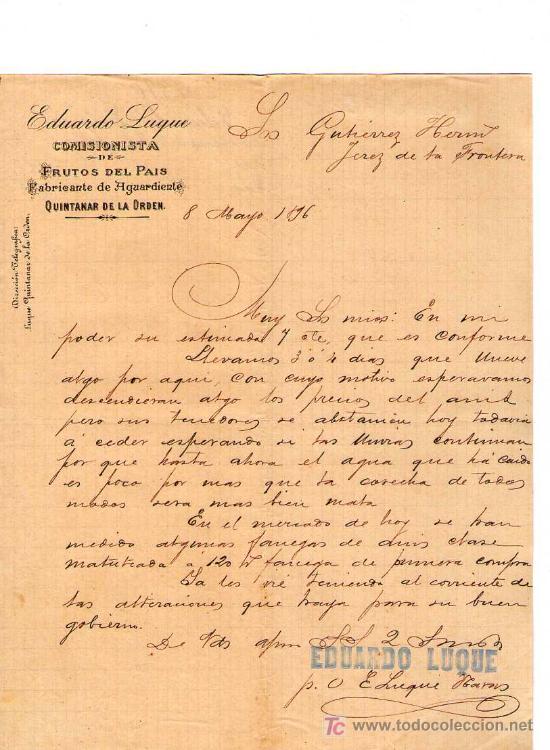 Eduardo Luque
COMISIONISTA
DE
FRUTOS DEL PAIS
Fabricante de Aguardiente
QUINTANAR DE LA ORDEN.
Dirección Telegráfica:
Luque Quintanar de la Orden.
Srs Gutierrez Herms
Jerez de la Frontera
8 Mayo 1896
Muy Srs mios: En mi
poder su estimada 7 cte, que es conforme
Llevamos 3 ó 4 dias que llueve
algo por aqui, con cuyo motivo esperavamos
descendieran algo los precios del anis
pero sus tenedores se abstienen hoy todavia
á ceder esperando si las lluvias continuan
por que hasta ahora el agua que há caido
es poco por mas que la cosecha de todos
modos sera mas bien mala
En el mercado de hoy se han
medido algunas fanegas de anis clase
á 120 fanega de primera compra
Ya les iré teniendo al corriente de
las alteraciones que haya para su buen
gobierno.
De Vds afmo SS 2
EDUARDO LUQUE
p. O E Luque
TC www.todocoleccion.net